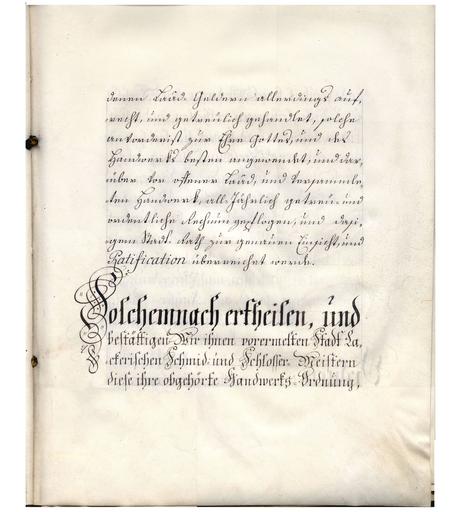 denen Laad-Geldern allerdings auf,
recht, und getreulich gehandlet, solche
anforderist zur Ehre Gottes, und des
Handwerks besten angewendet, und dar,
über vor offener Laad, und versammle,
ten Handwerk, all-Jährlich getreu- und
ordentliche Rechnung gepflogen, und dasi,
gen Stadt-Rath zur genauen Einsicht, und
Ratification überreichet werde.
Solchemnach ertheilen, und
bestättigen Wir ihnen vorermelten Stadt La,
ckerischen Schmid- und Schlosser-Meistern
diese ihre obgehörte Handwerks-Ordnung,